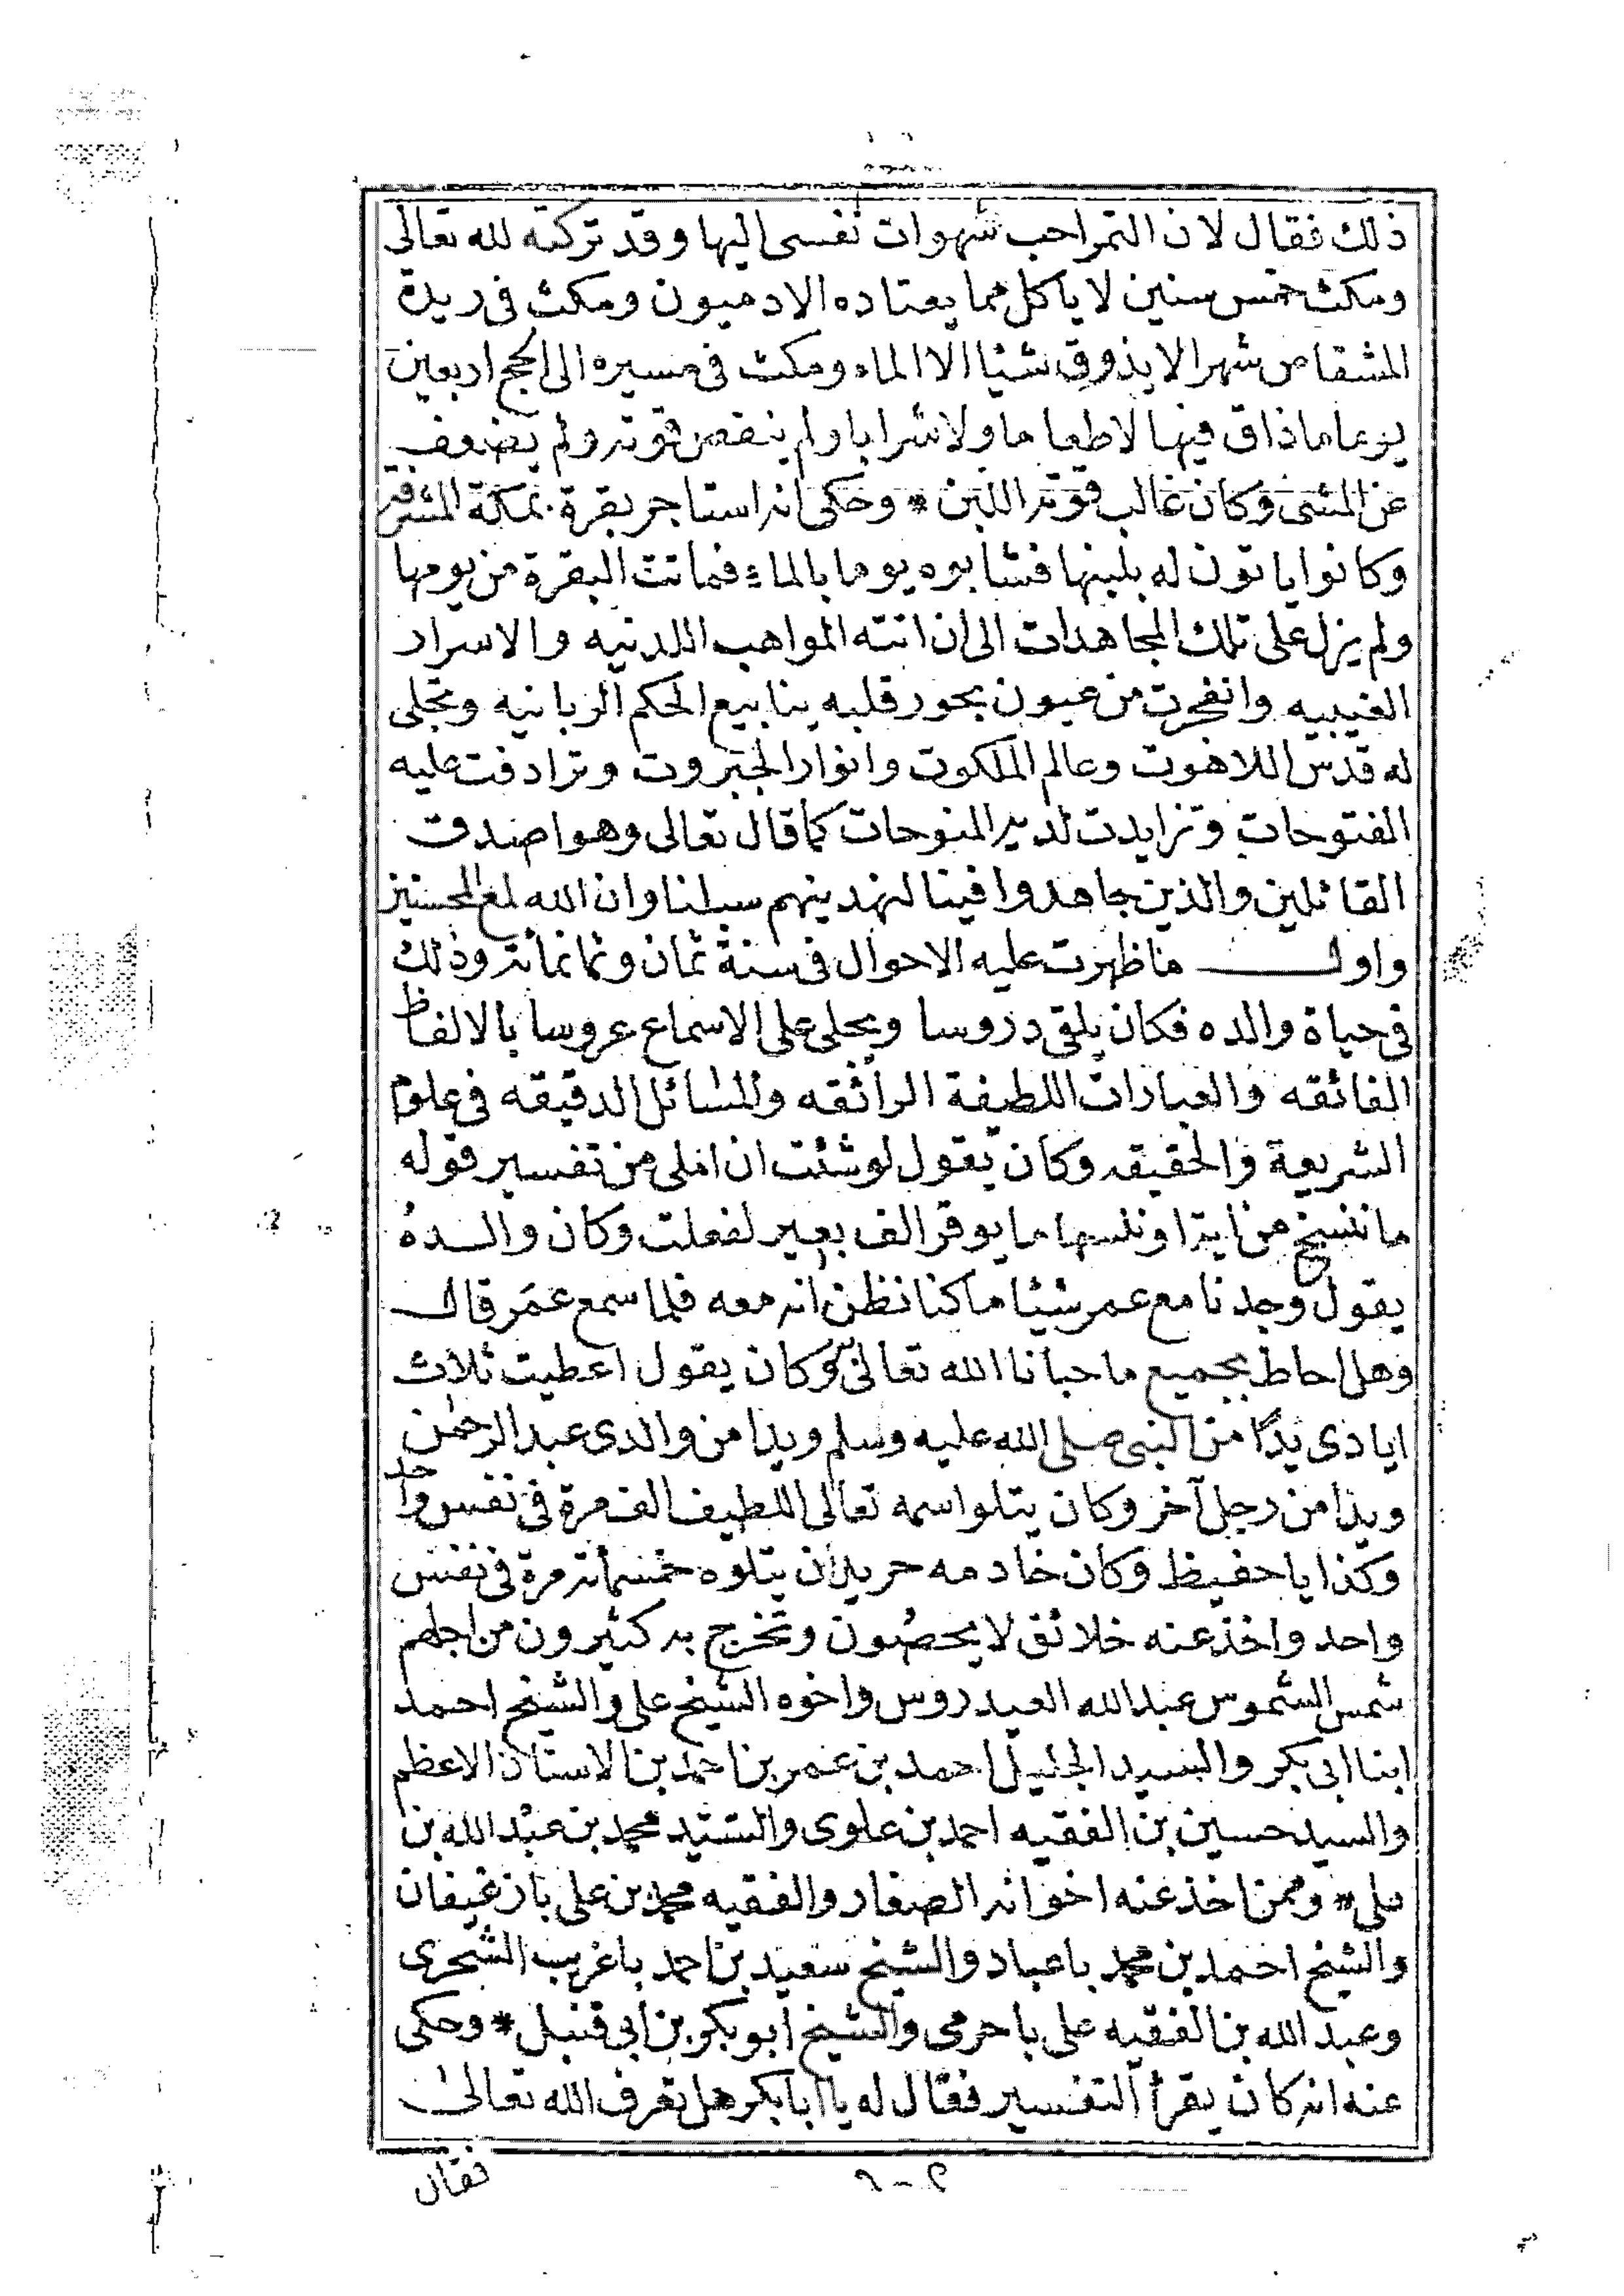 ذلك فقال لان التمر احب شهوات نفسى اليها وقد تركته لله تعالى
ومكث خمس سنين لا ياكل مما يعتاده الادميون ومكث فى ريدة
المشقاص شهرا لا يذوق شئا الا الماء ومكث فى مسيره الى الحج اربعين
يوما ما ذاق فيها لا طعاما ولا شرابا ولم ينقص قوته ولم يضعف
عن المشى وكان غالب قوته اللبن * وحكى انه استاجر بقرة بمكة المشرفة
وكانوا ياتون له بلبنها فشابوه يوما بالماء فماتت البقرة من يومها
ولم يزل على تلك المجاهدات الى ان اتته المواهب اللدنيه والاسرار
الغيبيه وانفجرت من عيون بحور قلبه ينابيع الحكم الربانيه وتجلى
له قدس اللاهوت وعالم الملكوت وانوار الجبروت وترادفت عليه
الفتوحات وتزايدت لديه المنوحات كما قال تعالى وهو اصدق
القائلين والذين جاهدوا فينا لنهدينهم سبلنا وان الله لمع المحسنين
واول ما ظهرت عليه الاحوال فى سنة ثمان وثمانمائه وذلك
فى حياة والده فكان يلقى دروسا ويجلى على الاسماع عروسا بالالفاظ
الفائقه والعبارات اللطيفة الرائقه والمسائل الدقيقه فى علوم
الشريعة والحقيقه وكان يقول لو شئت ان املى من تفسير قوله
ما ننسخ من اية او ننسها ما يوقر الف بعير لفعلت وكان والده
يقول وجدنا مع عمر شئا ما كنا نظن انه معه فلما سمع عمر قال
وهل احاط بجميع ما حبانا الله تعالى وكان يقول اعطيت ثلاث
ايادى يدا من النبى صلى الله عليه وسلم ويدا من والدى عبد الرحمن
ويدا من رجل آخر وكان يتلو اسمه تعالى اللطيف الف مرة فى نفس واحد
وكذا يا حفيظ وكان خادمه حريدان يتلوه خمسمائه مرة فى نفس
واحد واخذ عنه خلائق لا يحصون وتخرج به كثيرون من اجلهم
شمس الشموس عبد الله العيدروس واخوه الشيخ على والشيخ احمد
ابنا ابى بكر والسيد الجليل احمد بن عمر بن احمد بن الاستاذ الاعظم
والسيد حسين بن الفقيه احمد بن علوى والسيد محمد بن عبد الله بن
على * وممن اخذ عنه اخوانه الصغار والفقيه محمد بن على باز غيفان
والشيخ احمد بن محمد باعباد والشيخ سعيد بن احمد باغريب الشحرى
وعبد الله بن الفقيه على باحرمى والشيخ ابو بكر بن ابى قنبل * وحكى
عنه انه كان يقرأ التفسير فقال له يا ابا بكر هل تعرف الله تعالى
فقال